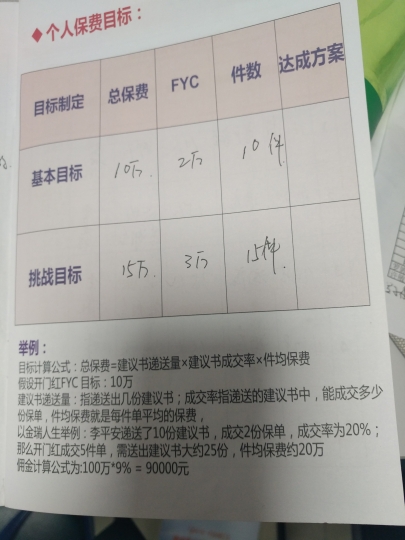 ◆ 个人保费目标：
目标制定 总保费 FYC 件数 达成方案
基本目标 10万. 2万 10件
挑战目标 15万. 3万 15件.
举例：
目标计算公式：总保费=建议书递送量×建议书成交率×件均保费
假设开门红FYC 目标：10万
建议书递送量：指递送出几份建议书；成交率指递送的建议书中，能成交多少
份保单，件均保费就是每件单平均的保费，
以金瑞人生举例：李平安递送了10份建议书，成交2份保单，成交率为20%；
那么开门红成交5件单，需送出建议书大约25份，件均保费约20万
佣金计算公式为:100万*9% = 90000元